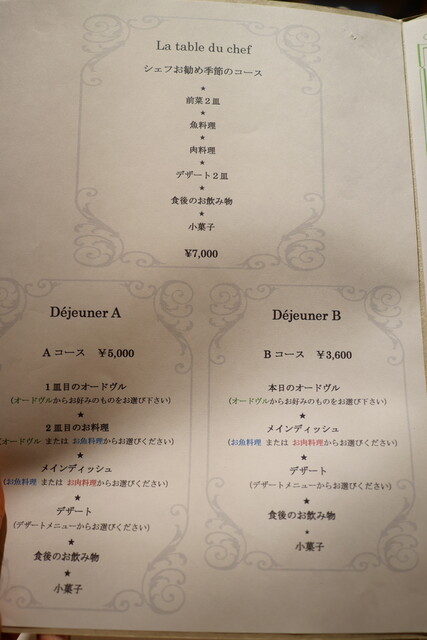 La table du chef
シェフお勧め季節のコース
★
前菜２皿
★
魚料理
★
肉料理
★
デザート２皿
★
食後のお飲み物
★
小菓子
¥7,000
Déjeuner A
A コース ¥5,000
１皿目のオードヴル
(オードヴルからお好みのものをお選び下さい)
★
２皿目のお料理
(オードヴル または お魚料理からお選びください)
★
メインディッシュ
(お魚料理 または お肉料理からお選びください)
★
デザート
(デザートメニューからお選びください)
★
食後のお飲み物
★
小菓子
Déjeuner B
B コース ¥3,600
本日のオードヴル
(オードヴルからお好みのものをお選び下さい)
★
メインディッシュ
(お魚料理 または お肉料理からお選びください)
★
デザート
(デザートメニューからお選びください)
★
食後のお飲み物
★
小菓子